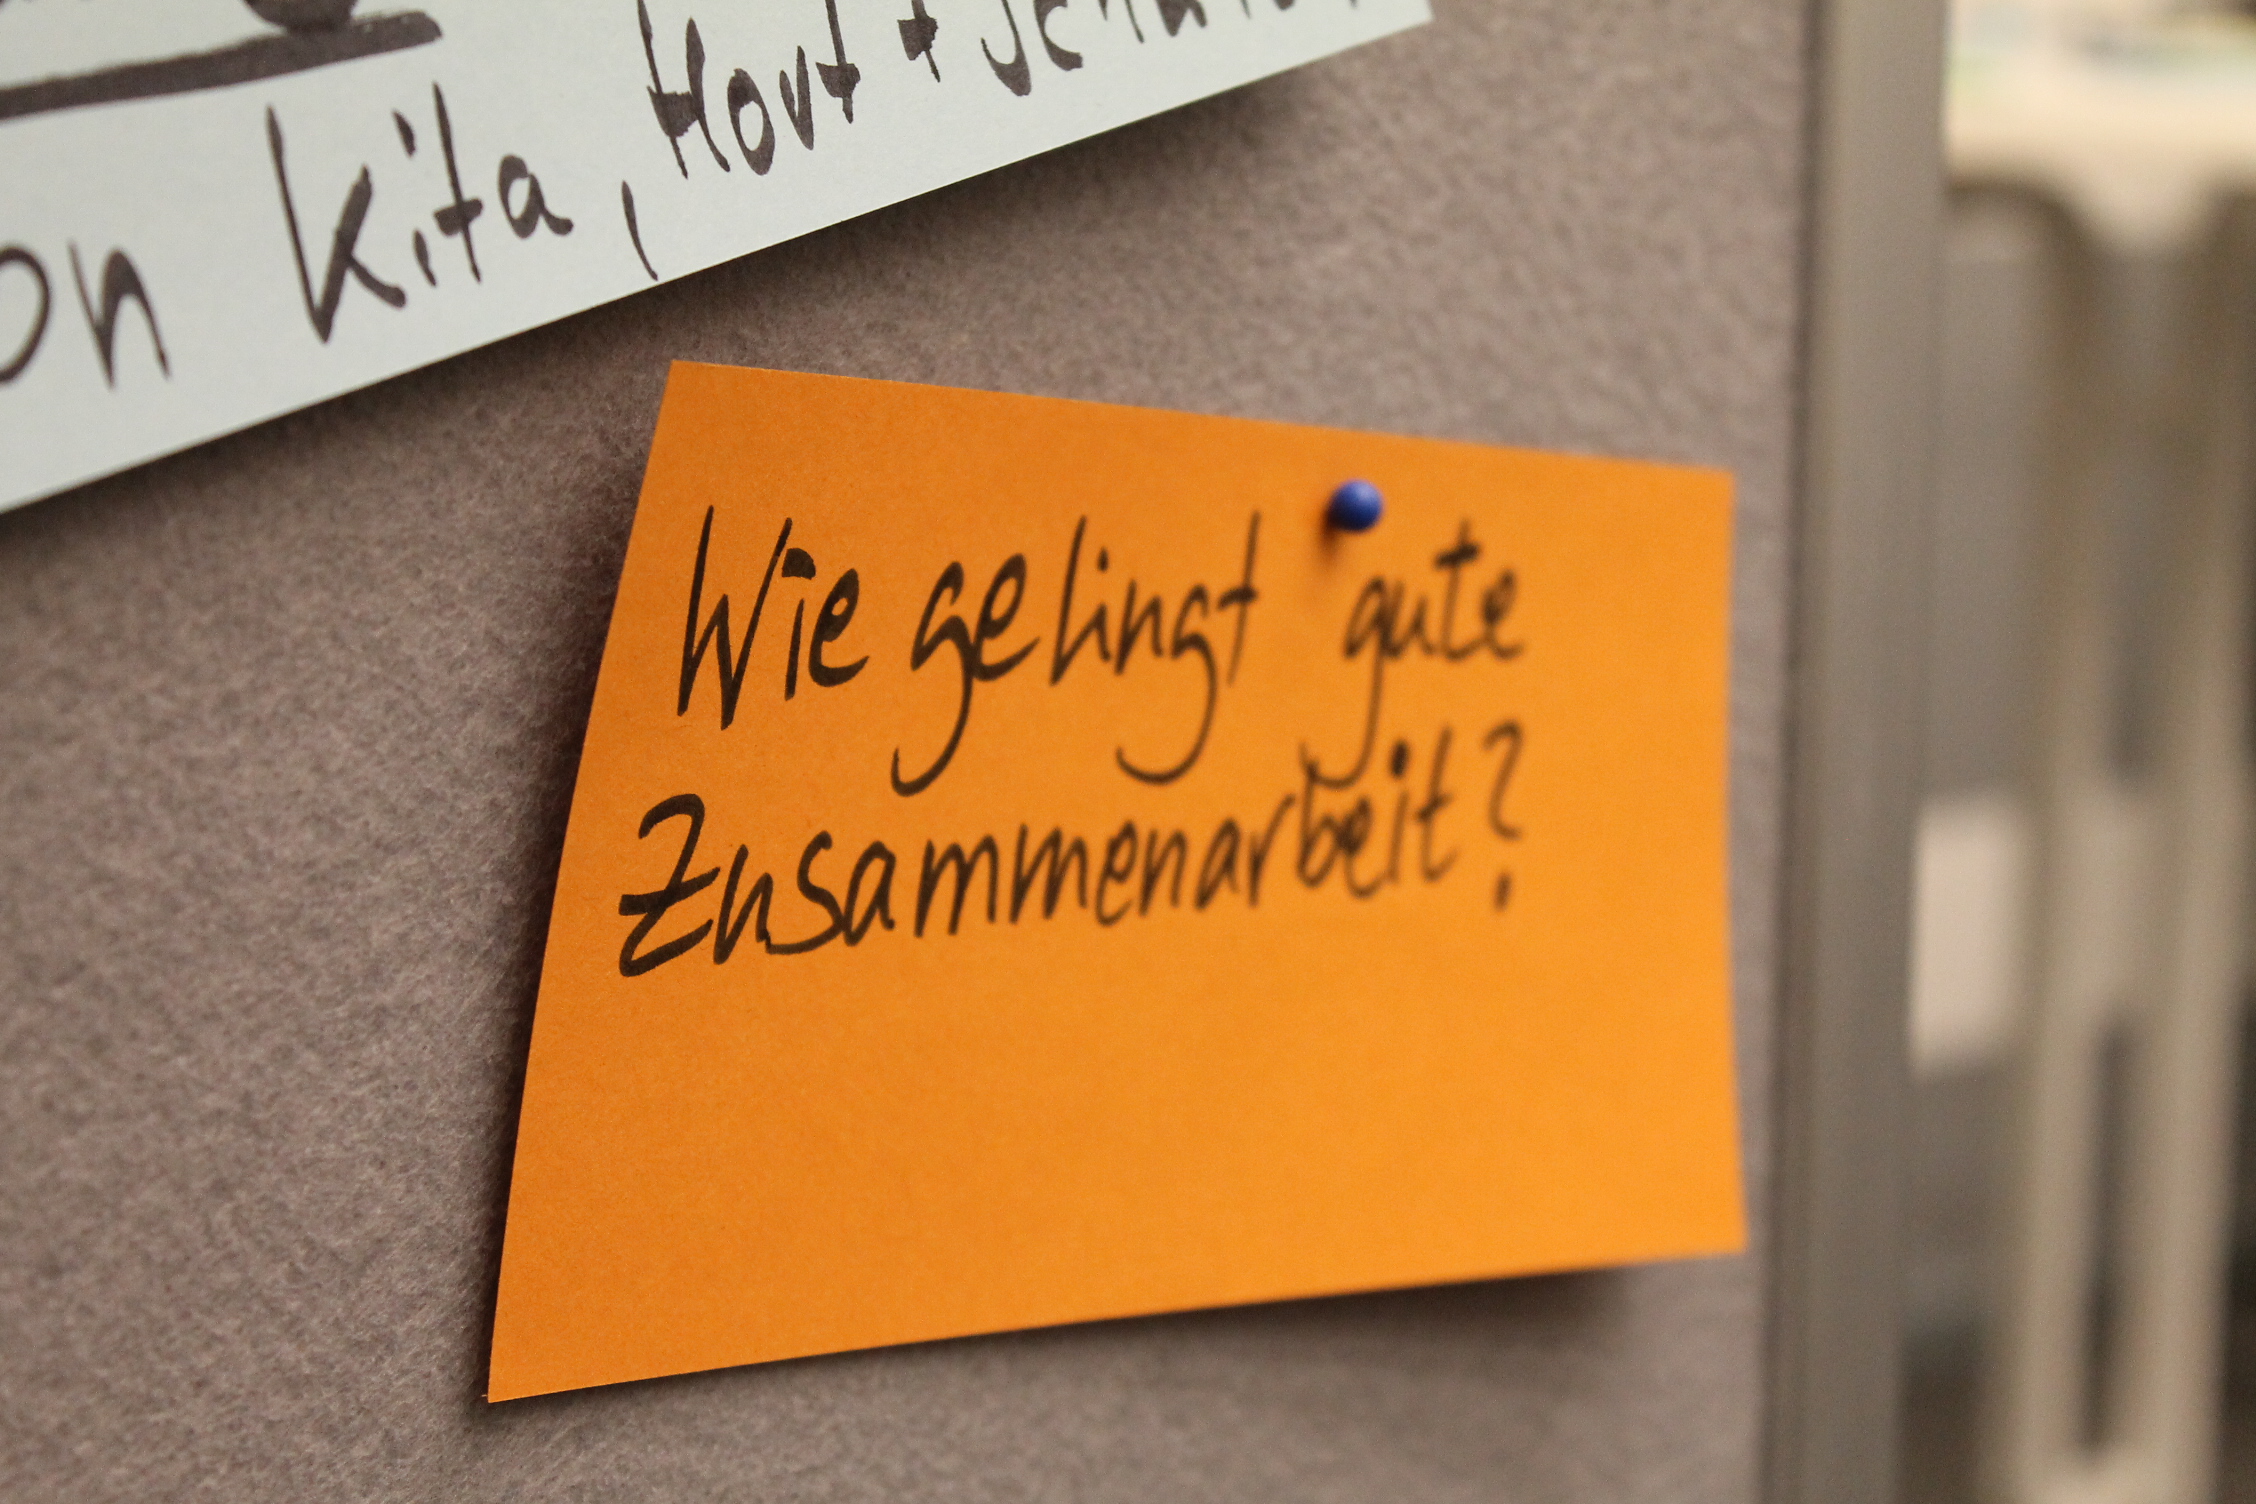 on Kita, Hort +
Wie gelingt gute
Zusammenarbeit?